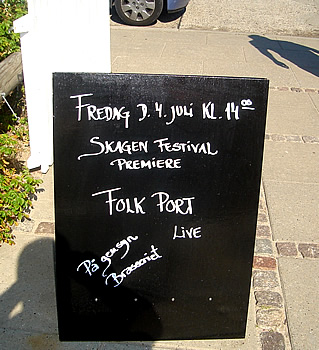 FREDAG D. 4. JULI KL. 14⁰⁰
SKAGEN FESTIVAL
PREMIERE
FOLK PORT
LIVE
På
Brasseriet